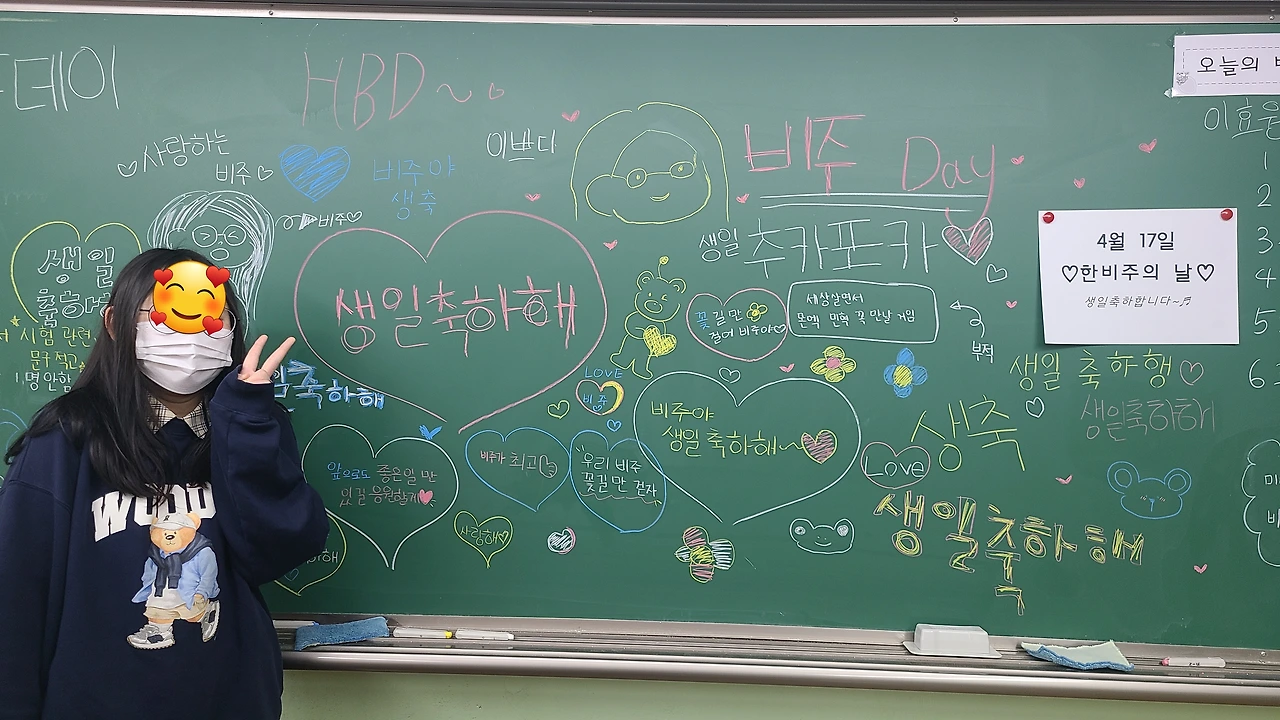 데이
HBD~
사랑하는
비주
비주야
생축
이쁘다
비주 Day
오늘의
이효은
비주
생일 추카포카
4월 17일
♡한비주의 날♡
생일축하합니다~♬
생일
생일축하해
꽃길만
걸어 비주야♡
세상살면서
꼭 만날 거임
부적
1
2
3
4
5
6
시험 관련
문구 적고
1명 안함
축하해
LOVE
비주
비주야
생일 축하해~
생일 축하행♡
생일축하해
생축
앞으로도 좋은일만
있길 응원할게
비주가 최고
우리 비주
꽃길만 걷자
Love
사랑해♡
생일축하해
WOOD